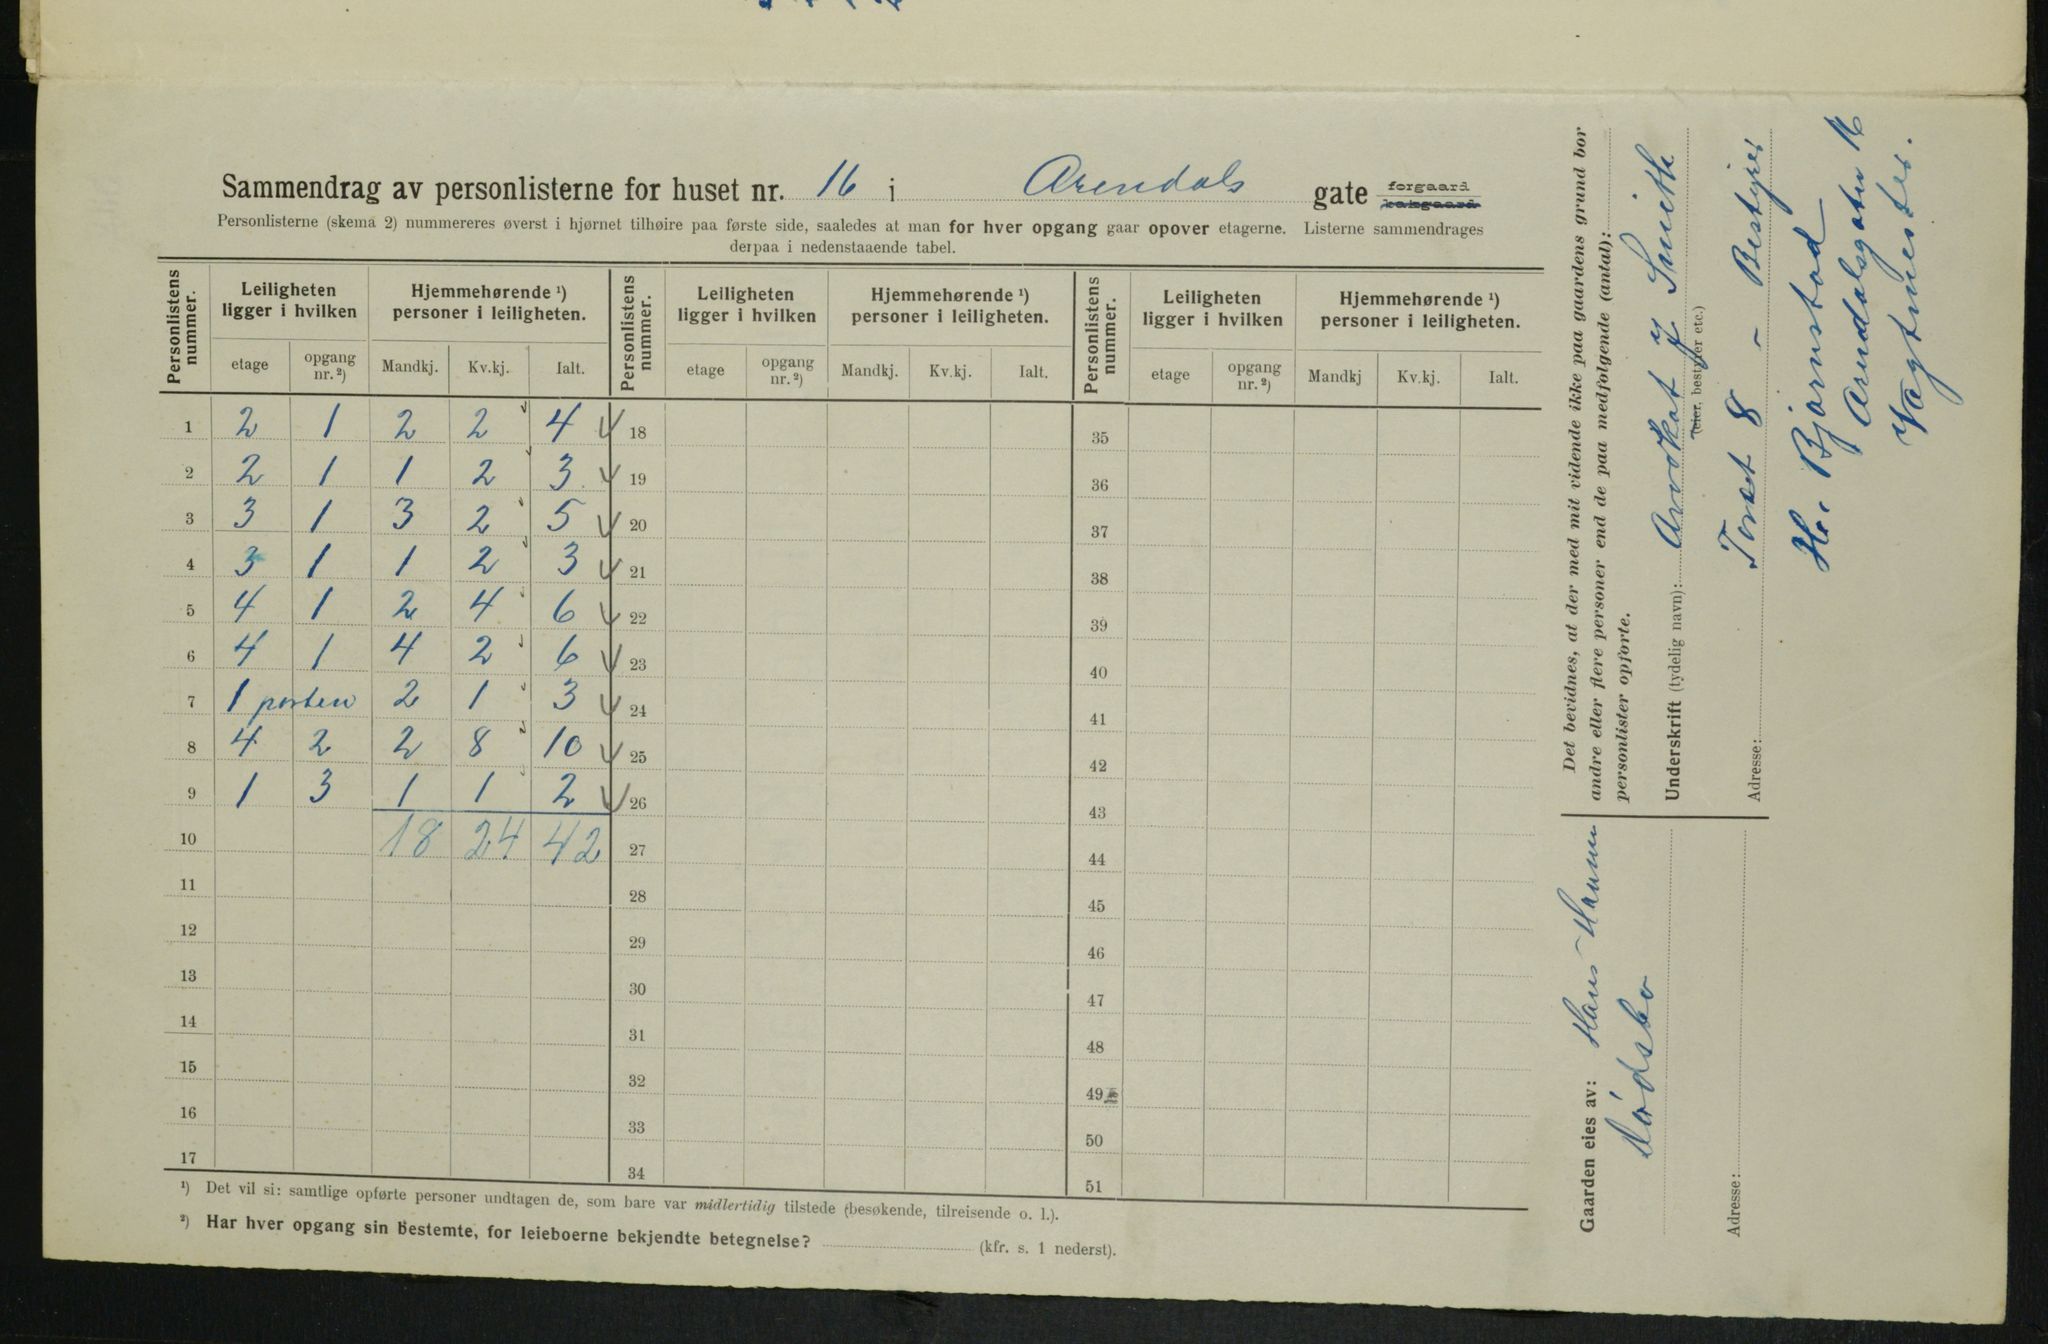 Sammendrag av personlisterne for huset nr. 16 i Arendals gate forgaard bakgaard
Personlisterne (skema 2) nummereres øverst i hjørnet tilhøire paa første side, saaledes at man for hver opgang gaar opover etagerne. Listerne sammendrages
derpaa i nedenstaaende tabel.
Personlistens nummer. Leiligheten ligger i hvilken Hjemmehørende ¹) personer i leiligheten. Personlistens nummer. Leiligheten ligger i hvilken Hjemmehørende ¹) personer i leiligheten. Personlistens nummer. Leiligheten ligger i hvilken Hjemmehørende ¹) personer i leiligheten.
etage opgang nr. ²) Mandkj. Kv.kj. Ialt. etage opgang nr. ²) Mandkj. Kv.kj. Ialt. etage opgang nr. ²) Mandkj Kv.kj. Ialt.
1 2 1 2 2 4 18 35
2 2 1 1 2 3 19 36
3 3 1 3 2 5 20 37
4 3 1 1 2 3 21 38
5 4 1 2 4 6 22 39
6 4 1 4 2 6 23 40
7 1 porten 2 1 3 24 41
8 4 2 2 8 10 25 42
9 1 3 1 1 2 26 43
10 18 24 42 27 44
11 28 45
12 29 46
13 30 47
14 31 48
15 32 49
16 33 50
17 34 51
¹) Det vil si: samtlige opførte personer undtagen de, som bare var midlertidig tilstede (besøkende, tilreisende o. l.).
²) Har hver opgang sin bestemte, for leieboerne bekjendte betegnelse? (kfr. s. 1 nederst).
Det bevidnes, at der med mit vidende ikke paa gaardens grund bor
andre eller flere personer end de paa medfølgende (antal):
personlister opførte.
Underskrift (tydelig navn):
(eier, bestyrer etc.)
Torvet 8 - Bestyrer
Adresse:
H. Bjørnstad
Arendalsgaten 16
Vagtmester.
Gaarden eies av: Hans
Adresse: